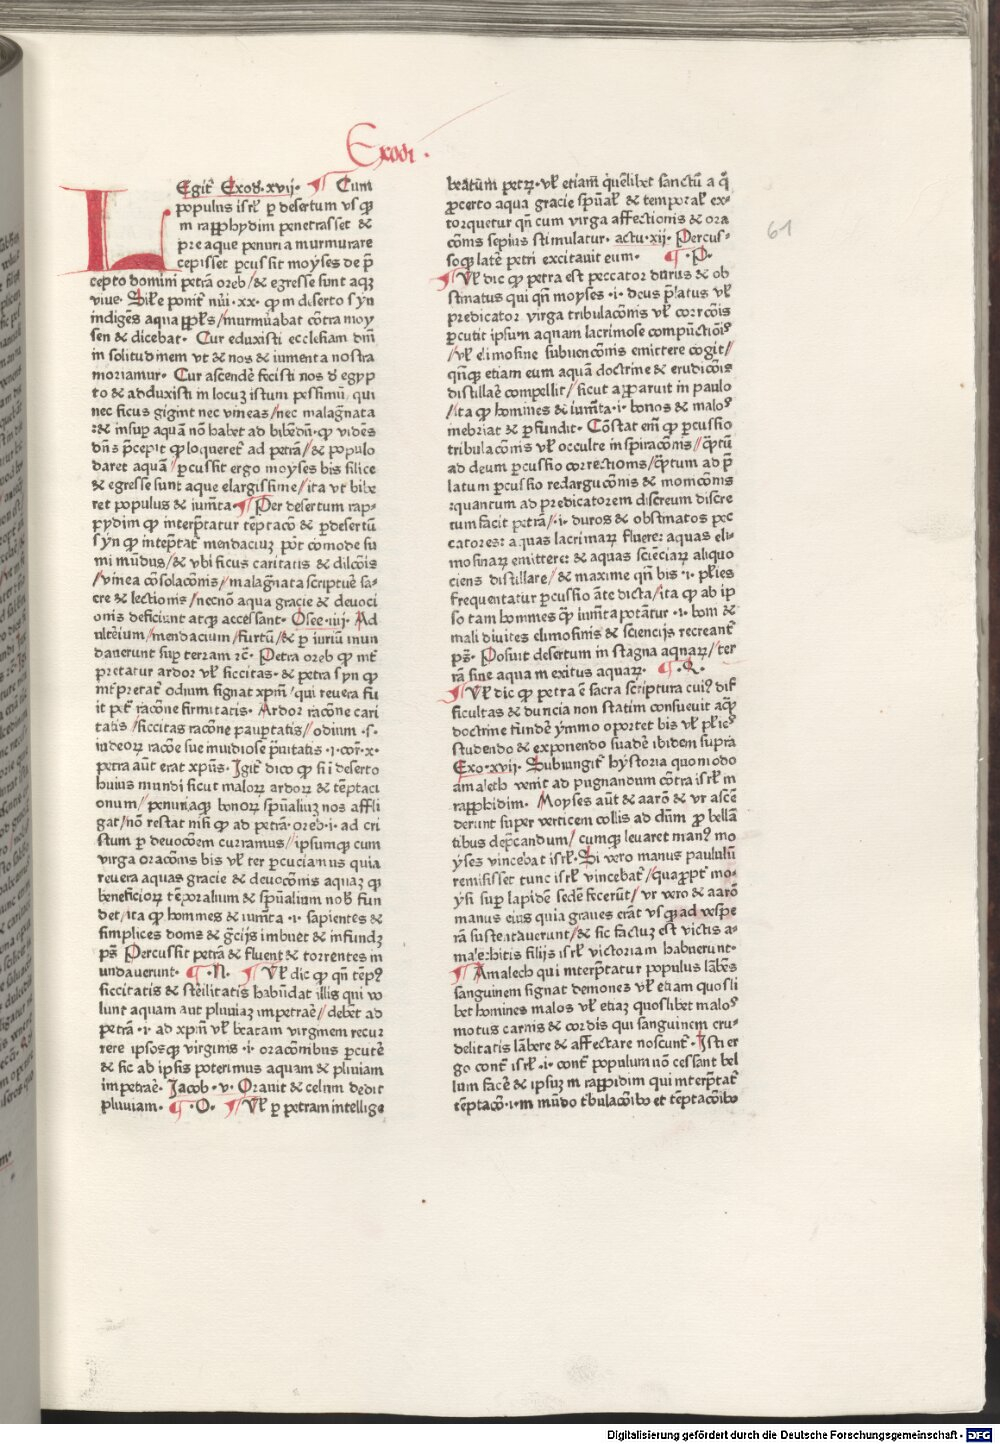 Exodi.
LEgit᷑ Exod̛.xvij. ¶ Cum
populus isrl̛ ꝑ desertum vsq̃
in rapphydim penetrasset ⁊
pre aque penuria murmurare
cepisset ꝑcussit moyses de p̃
cepto domini petrã oreb/⁊ egresse sunt aq̃ꝫ
viue. Sil̛e ponit᷑ nũi.xx. ꝙ in deserto syn
indigẽs aqua ppl̛s/murmũabat cõtra moy
sen ⁊ dicebat. Cur eduxisti ecclesiam dñi
in solitudinem vt ⁊ nos ⁊ iumenta nostra
moriamur. Cur ascendẽ fecisti nos d̛ egyp
to ⁊ adduxisti in locuꝫ istum pessimũ, qui
nec ficus gignit nec vineas/nec malagnata
:⁊ insuꝑ aquã nõ habet ad bibẽdũ.ꝙ vidẽs
dñs p̃cepit ꝙ loqueret᷑ ad petrã/⁊ populo
daret aquã//ꝑcussit ergo moyses bis silice
⁊ egresse sunt aque elargissime/ita vt bibe
ret populus ⁊ iumẽta.¶ Per desertum rap-
pydim ꝙ interp̃tatur tẽptacõ ⁊ ꝑ desertũ
syn ꝙ intep̃tat᷑ mendaciuꝫ põt cõmode su
mi mũdus/⁊ vbi ficus caritatis ⁊ dilcõis
/vinea cõsolacõnis/malagnata scriptuẽ sa-
cre ⁊ lectionis/necnõ aqua gracie ⁊ deuoci
onis deficiunt atq̃ accessant. Osee.iiij. Ad
ultẽium/mendacium/furtũ/⁊ ꝑiuriũ inun
dauerunt suꝑ terram ⁊c̃. Petra oreb ꝙ int̃
pretatur ardor vl̛ siccitas.⁊ petra syn ꝙ
int̛pretat᷑ odium signat xp̃m/qui reuera fu
it pet̃ racõne firmitatis. Ardor racõne cari
tatis/siccitas racõne pauꝑtatis/odium .s.
iudeoꝝ racõe sue inuidiose p̃uitatis.i.cor̃.x.
petra aũt erat xp̃us. Igit᷑ dico ꝙ si i deserto
huius mundi sicut maloꝝ ardoꝝ ⁊ tẽptaci
onum/penuriaq̃ꝫ bonoꝝ sp̃ualiuꝫ nos affli
gat/nõ restat nisi ꝙ ad petrã.oreb.i. ad cri
stum ꝑ deuocõem curramus/ipsumq̃ cum
virga oracõnis bis vl̛ ter ꝑcuciamus quia
reuera aquas gracie ⁊ deuocõnis aquaꝫ ꝙ
beneficioꝝ tẽporalium ⁊ sp̃ualium nob̛ fun
det/ita ꝙ homines ⁊ iumẽta .i. sapientes ⁊
simplices donis ⁊ gr̃cijs imbuet ⁊ infundꝫ
ps̃. Percussit petrã ⁊ fluent̃ ⁊ torrentes in
undauerunt. ¶ .N. ¶ Vl̛ dic ꝙ qñ tẽpꝰ
siccitatis ⁊ sterilitatis habũdat illis qui vo
lunt aquam aut pluuiaꝫ impetraẽ/debet ad
petrã .i. ad xp̃m vl̛ beatam virginem recur
rere ipsosq̃ virginis .i. oracõnibus ꝑcutẽ
⁊ sic ad ipsis poterimus aquam ⁊ pluuiam
impetraẽ. Jacob .v. Orauit ⁊ celum dedit
pluuiam. ¶ .O. ¶ Vl̛ ꝑ petram intellige
beatum petrꝝ.vl̛ etiam q̃mlibet sanctũ a q̃
ꝓcerto aqua gracie sp̃ual̛ ⁊ temporal̛ ex-
torquetur qñ cum virga affectionis ⁊ ora
cõnis sepius stimulatur. actu.xij. Percus-
soq̃ꝫ latẽ petri excitauit eum. ¶ .P.
¶ Vl̛ dic ꝙ petra est peccator durus ⁊ ob
stinatus qui qñ moyses .i. deus p̃latus vl̛
predicator virga tribulacõnis vl̛ correcõis
ꝑcutit ipsum aquam lacrimose compũctiõis
/vl̛ elimosine subuencõnis emittere cogit//
qñq̃ etiam eum aquã doctrine ⁊ erudicõis
distillaẽ compellit/sicut apparuit in paulo
/ita ꝙ homines ⁊ iumẽta.i. bonos ⁊ malos
inebriat ⁊ ꝑfundit. Cõstat em̃ ꝙ ꝑcussio
tribulacõnis vl̛ occulte inspiracõnis//q̃ptũ
ad deum ꝑcussio correctionis/q̃ptum ad p̃
latum ꝑcussio redargucõnis ⁊ monicõnis
:quantum ad predicatorem discreum discre
tum facit petrã/.i. duros ⁊ obstinatos pec
catores: aquas lacrimaꝝ fluere: aquas eli-
mosinaꝝ emittere: ⁊ aquas sciẽciaꝝ aliquo
ciens distillare/⁊ maxime qñ bis .i. pl̛ies
frequentatur ꝑcussio ãte dicta/ita ꝙ ab ip
so tam homines q̃ iumẽta potãtur .i. boni ⁊
mali diuites elimosinis ⁊ sciencijs recreant᷑
ps̃. Posuit desertum in stagna aquaꝝ/ter
rã sine aqua in exitus aquaꝝ. ¶ .Q.
¶ Vl̛ dic ꝙ petra ẽ sacra scriptura cuiꝰ dif
ficultas ⁊ duricia non statim consueuit aq̃ꝫ
doctrine fũdẽ ymmo oportet bis vl̛ pl̛ies
studendo ⁊ exponendo suadẽ ibidem supra
Exo.xvij. Subiungit᷑ hystoria quomodo
amalech venit ad pugnandum cõtra isrl̛ in
rapphidim. Moyses aũt ⁊ aarõ ⁊ vr ascẽ
derunt super verticem collis ad dñm ꝓ bellã
tibus dep̃candum/cumq̃ leuaret manꝰ mo
yses vincebat isrl̛. Si vero manus paululũ
remisisset tunc isrl̛ vincebat᷑/quappt̃ mo-
ysi suꝑ lapidẽ sedẽ fecerũt/vr vero ⁊ aarõ
manus eius quia graues erãt vsq̃ ad vespe
rã sustentauerunt/⁊ sic factuꝫ est victis a-
malechitis filijs isrl̛ victoriam habuerunt.
¶ Amalech qui interp̃tatur populus lãbẽs
sanguinem signat demones vl̛ etiam quosli
bet homines malos vl̛ etiaꝫ quoslibet malos
motus carnis ⁊ cordis qui sanguinem cru-
delitatis lãbere ⁊ affectare noscunt᷑. Isti er
go cont̃ isrl̛ .i. cont̃ populum nõ cessant bel
lum facẽ ⁊ ipsuꝫ in rappidim qui interp̃tat᷑
tẽptacõ.i. in mũdo tribulacõibꝰ et tẽptacõibꝰ
61
Digitalisierung gefördert durch die Deutsche Forschungsgemeinschaft - DFG